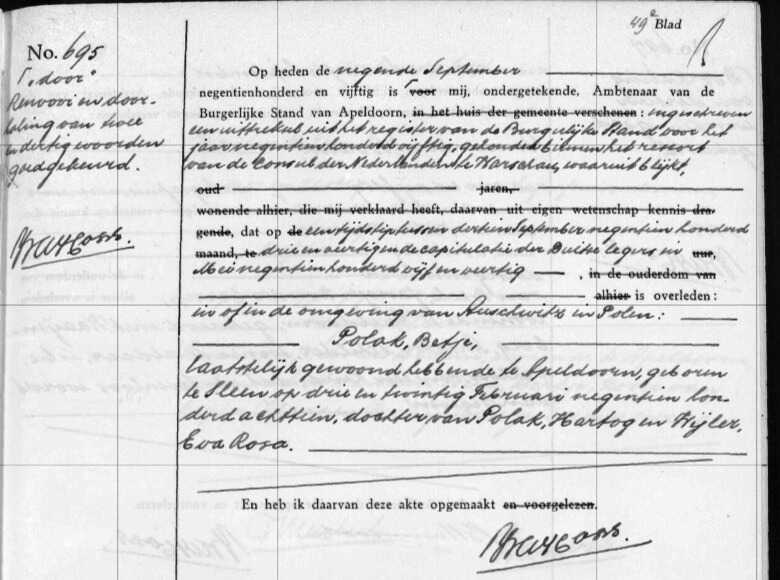 49e Blad
No. 695
Γ "door"
Renvooi en door-
haling van twee
en dertig woorden
goedgekeurd.
Op heden de negende September
negentienhonderd en vijftig is Γ voor mij, ondergetekende, Ambtenaar van de
Burgerlijke Stand van Apeldoorn, in het huis der gemeente verschenen: ingeschreven
een uittreksel uit het register van de Burgerlijke Stand voor het
jaar negentien honderd vijftig, gehouden binnen het ressort
van de Consul der Nederlanden te Warschau, waaruit blijkt,
oud jaren,
wonende alhier, die mij verklaard heeft, daarvan uit eigen wetenschap kennis dra-
gende, dat op de een tijdstip tussen dertien September negentien honderd
maand, te drie en veertig en de capitulatie der Duitse legers in uur,
Mei negentien honderd vijf en veertig , in de ouderdom van
alhier is overleden:
in of in de omgeving van Auschwitz in Polen:
Polak, Betje,
laatstelijk gewoond hebbende te Apeldoorn, geboren
te Sleen op drie en twintig Februari negentien hon-
derd achttien, dochter van Polak, Hartog en Wijler,
Eva Rosa.
En heb ik daarvan deze akte opgemaakt en voorgelezen.